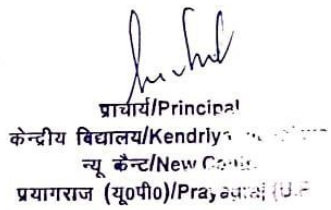 प्राचार्य/Principal
केन्द्रीय विद्यालय/Kendriya
न्यू कैन्ट/New Cantt.
प्रयागराज (यू०पी०)/Prayagraj (U.P